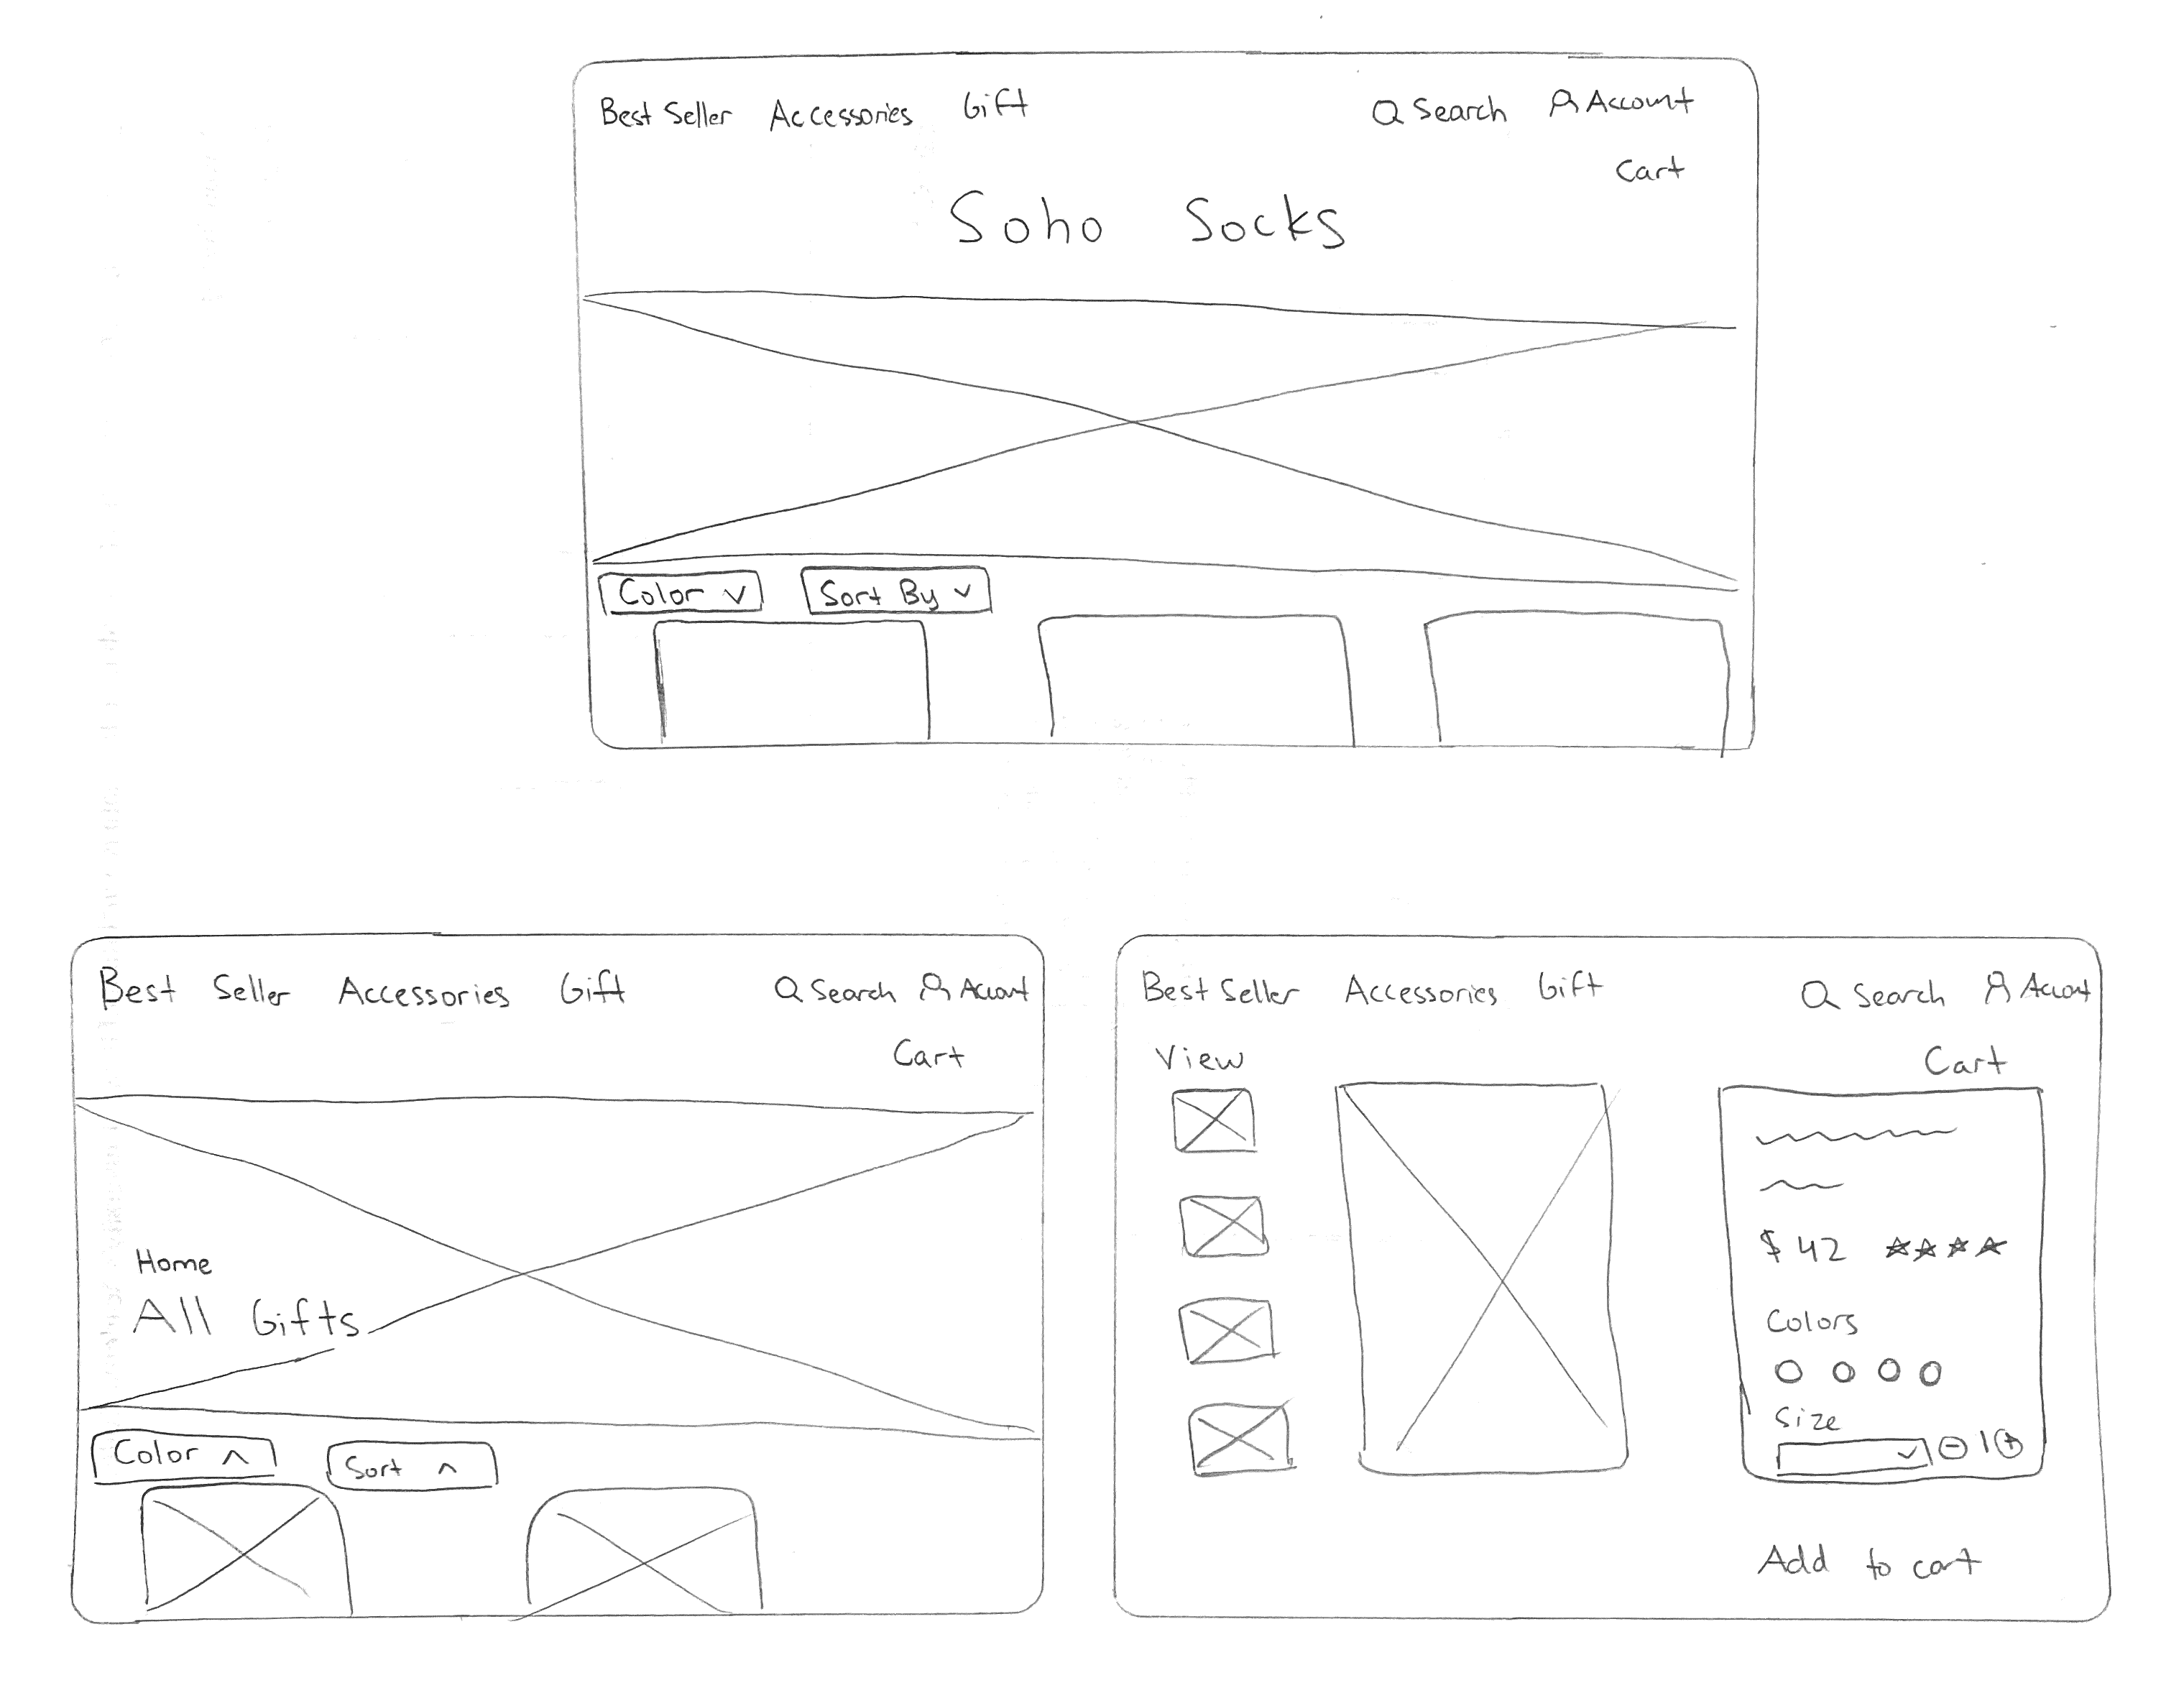 Best Seller Accessories Gift Search Account
Cart
Soho Socks
Color Sort By
Best Seller Accessories Gift Search Account
Cart
Home
All Gifts
Color Sort
Best Seller Accessories Gift Search Account
View Cart
$ 42
Colors
Size
1
Add to cart